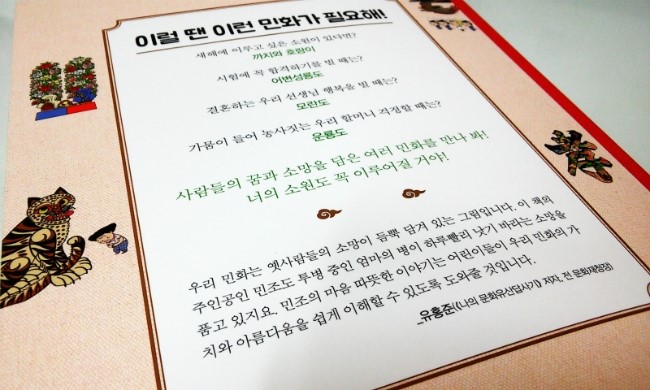 이럴 땐 이런 민화가 필요해!
새해에 이루고 싶은 소원이 있다면?
까치와 호랑이
시험에 꼭 합격하기를 빌 때는?
어변성룡도
결혼하는 우리 선생님 행복을 빌 때는?
모란도
가뭄이 들어 농사짓는 우리 할머니 걱정할 때는?
운룡도
사람들의 꿈과 소망을 담은 여러 민화를 만나 봐!
너의 소원도 꼭 이루어질 거야!
우리 민화는 옛사람들의 소망이 듬뿍 담겨 있는 그림입니다. 이 책의
주인공인 민조도 투병 중인 엄마의 병이 하루빨리 낫기 바라는 소망을
품고 있지요. 민조의 마음 따뜻한 이야기는 어린이들이 우리 민화의 가
치와 아름다움을 쉽게 이해할 수 있도록 도와줄 것입니다.
_유홍준(《나의 문화유산답사기》 저자, 전 문화재청장)